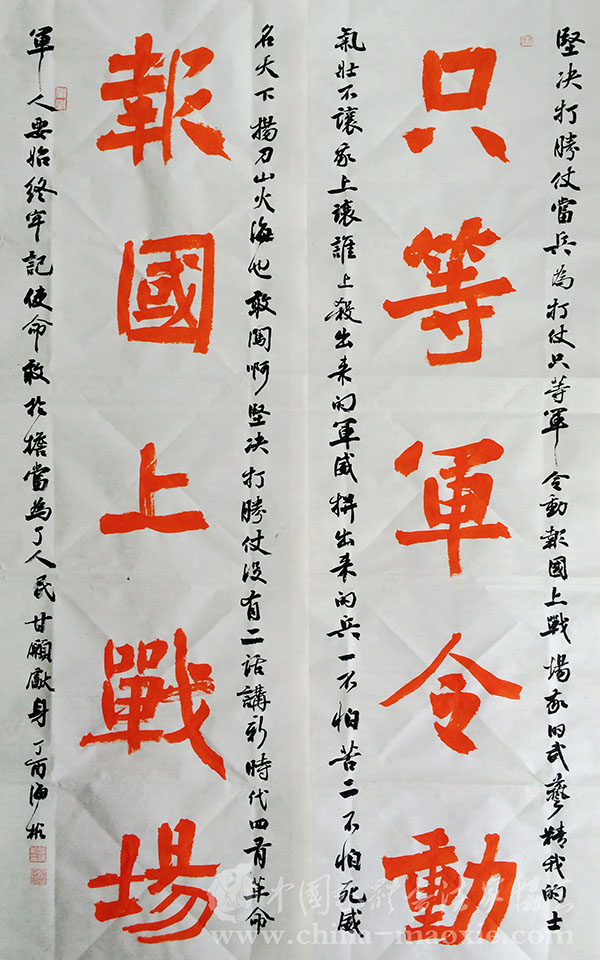 堅决打勝仗當兵為打仗只等軍令動報國上戰場我的武藝精我的士
只等軍令動
氣壯不讓我上讓誰上殺出来的軍威拼出来的兵一不怕苦二不怕死威
名天下揚刀山火海也敢闖啊堅决打勝仗没有二話講新時代四有革命
報國上戰場
軍人要始終牢記使命敢於擔當為了人民甘願獻身丁酉海彬
www.china-maoxie.com